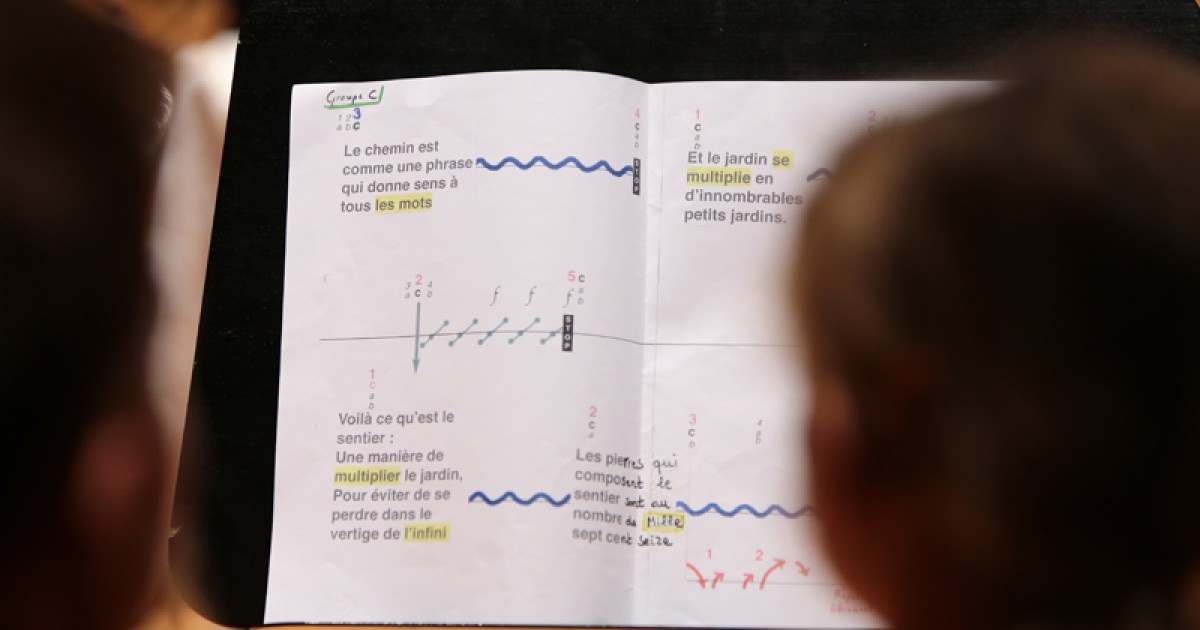 Groupe C
1 2 3
a b c
Le chemin est
comme une phrase
qui donne sens à
tous les mots
4
c
a
b
STOP
1
c
a
b
Et le jardin se
multiplie en
d'innombrables
petits jardins.
2
3 2 4
a c b
f f f
5 c
a
b
STOP
1
c
a
b
Voilà ce qu'est le
sentier :
Une manière de
multiplier le jardin,
Pour éviter de se
perdre dans le
vertige de l'infini
2
c
a
Les pierres qui
composent le
sentier sont au
nombre de Mille
sept cent seize
3
c
b
4
a
b
1 2